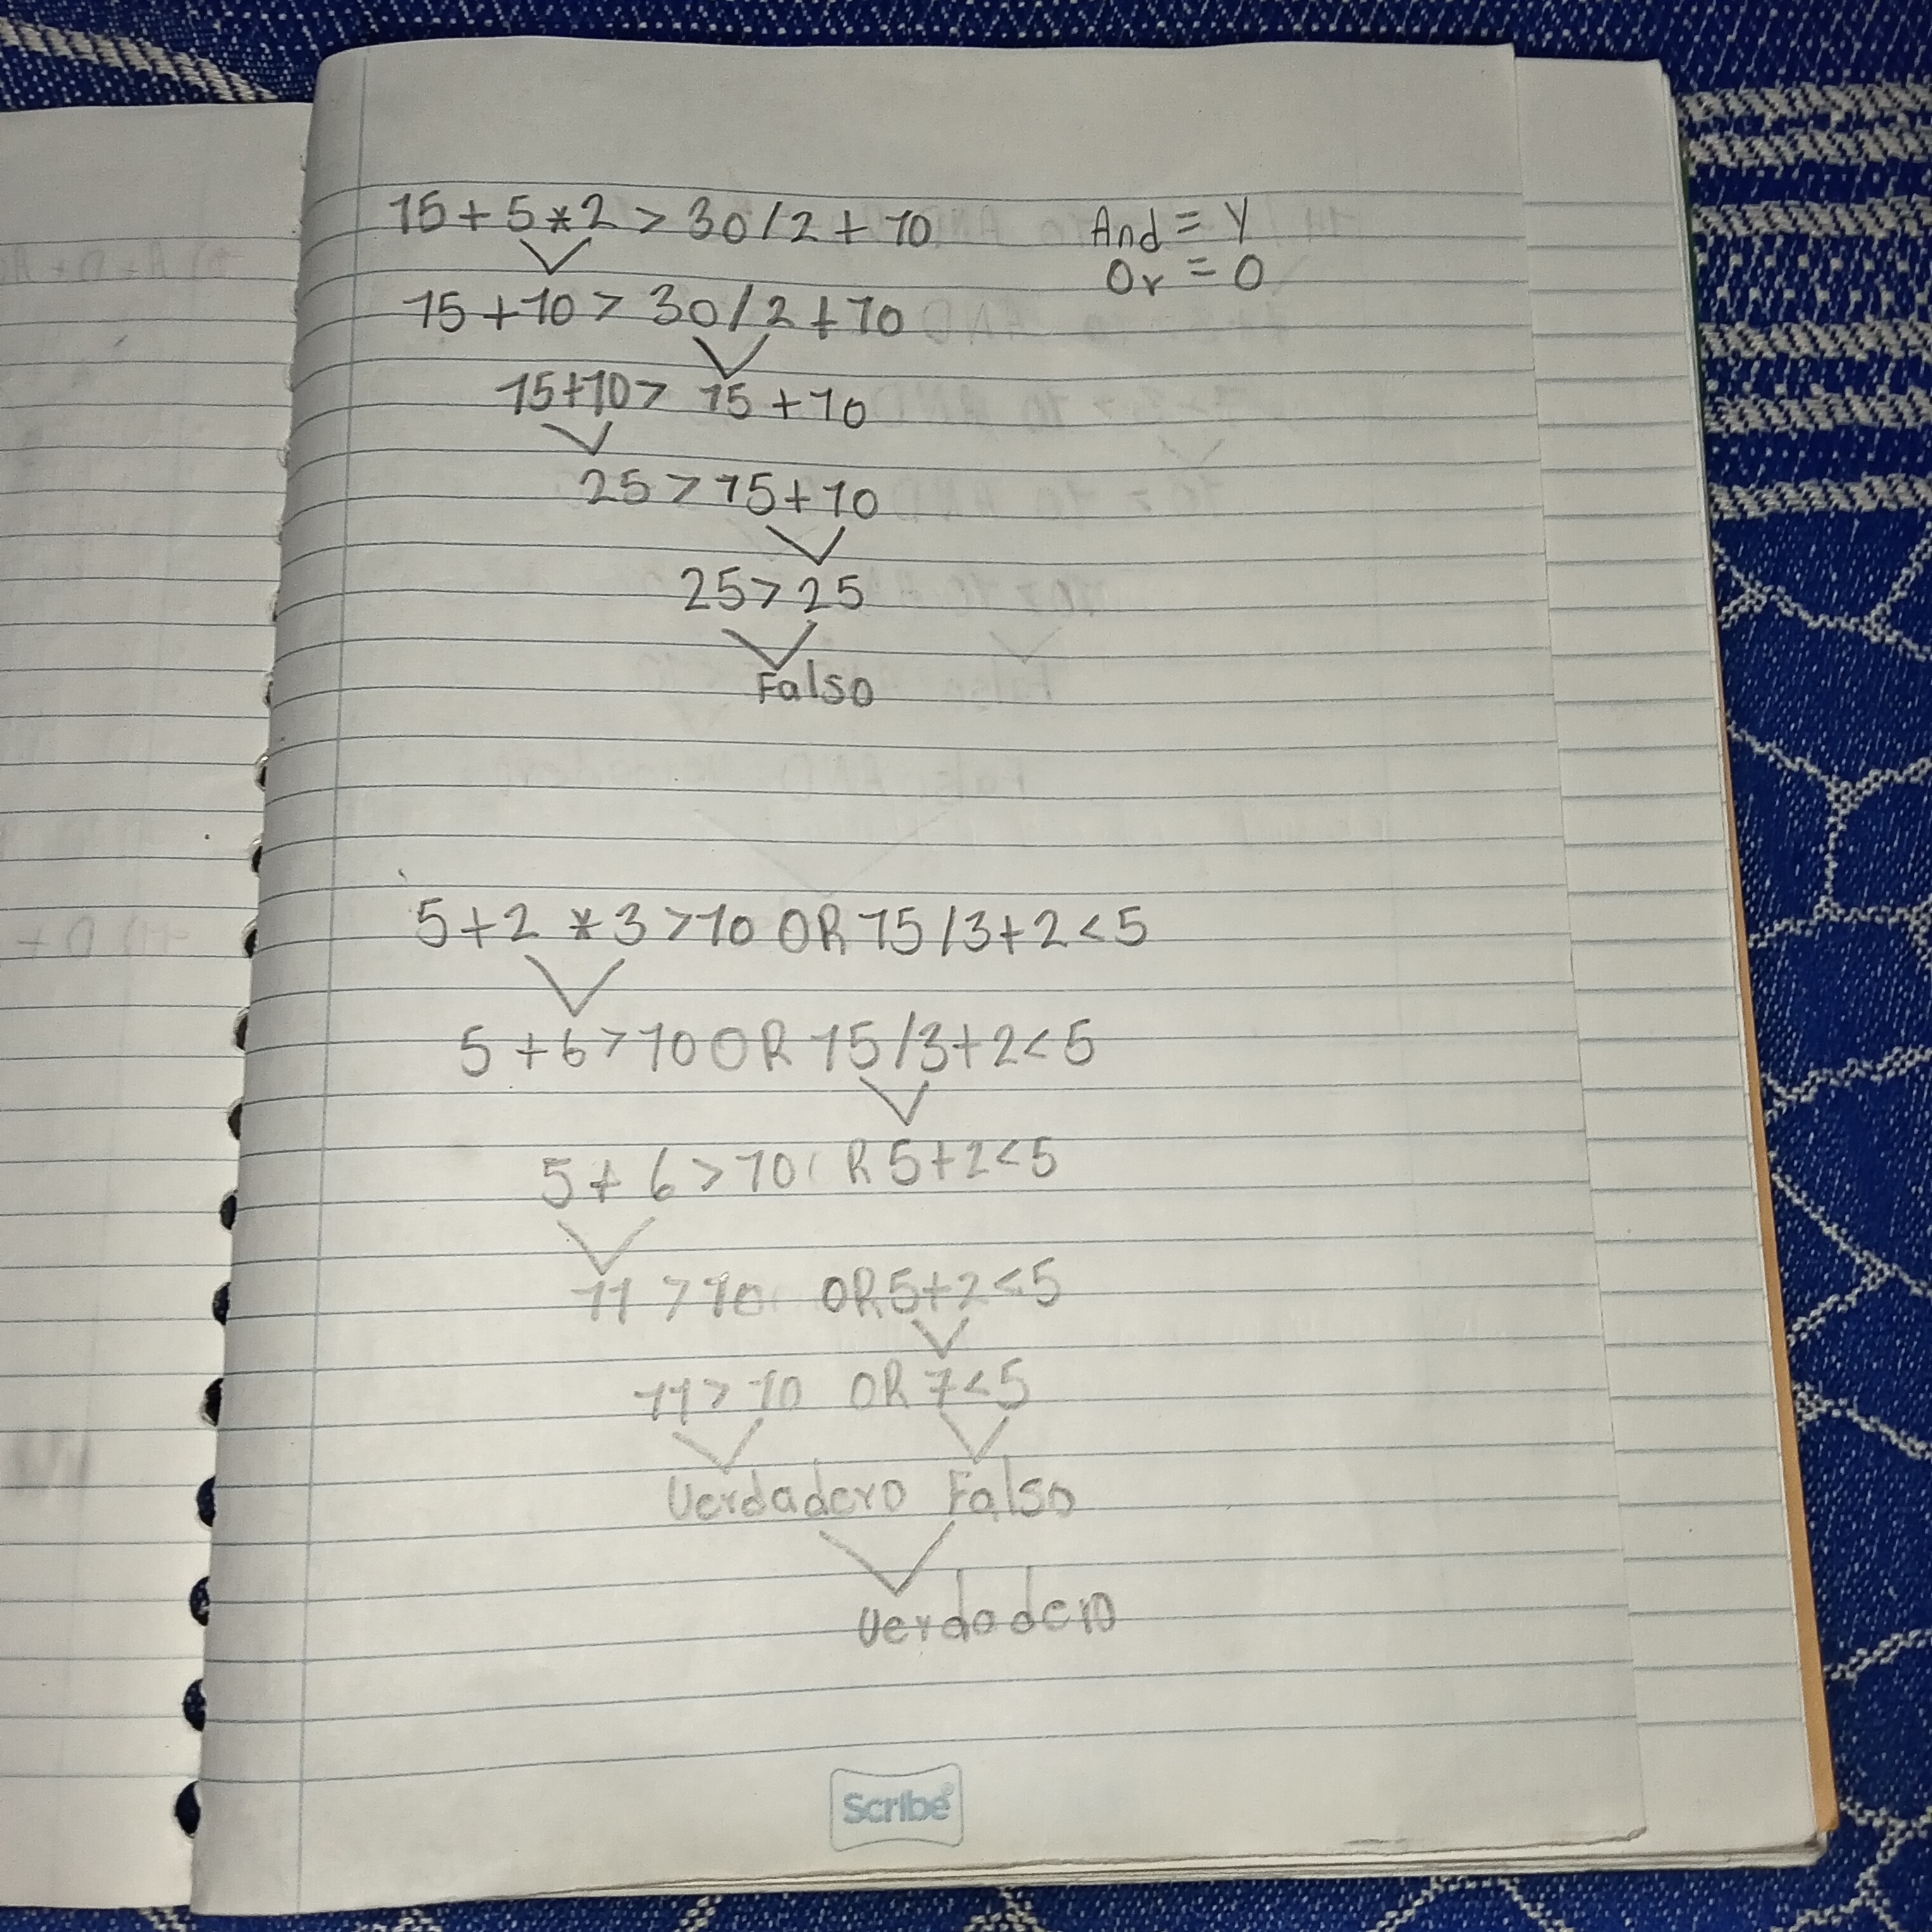 15 + 5 * 2 > 30 / 2 + 10
And = Y
Or = O
15 + 10 > 30 / 2 + 10
15 + 10 > 15 + 10
25 > 15 + 10
25 > 25
Falso
5 + 2 * 3 > 10 OR 15 / 3 + 2 < 5
5 + 6 > 10 OR 15 / 3 + 2 < 5
5 + 6 > 10 R 5 + 2 < 5
11 > 10 OR 5 + 2 < 5
11 > 10 OR 7 < 5
Verdadero Falso
Verdadero
Scribe®